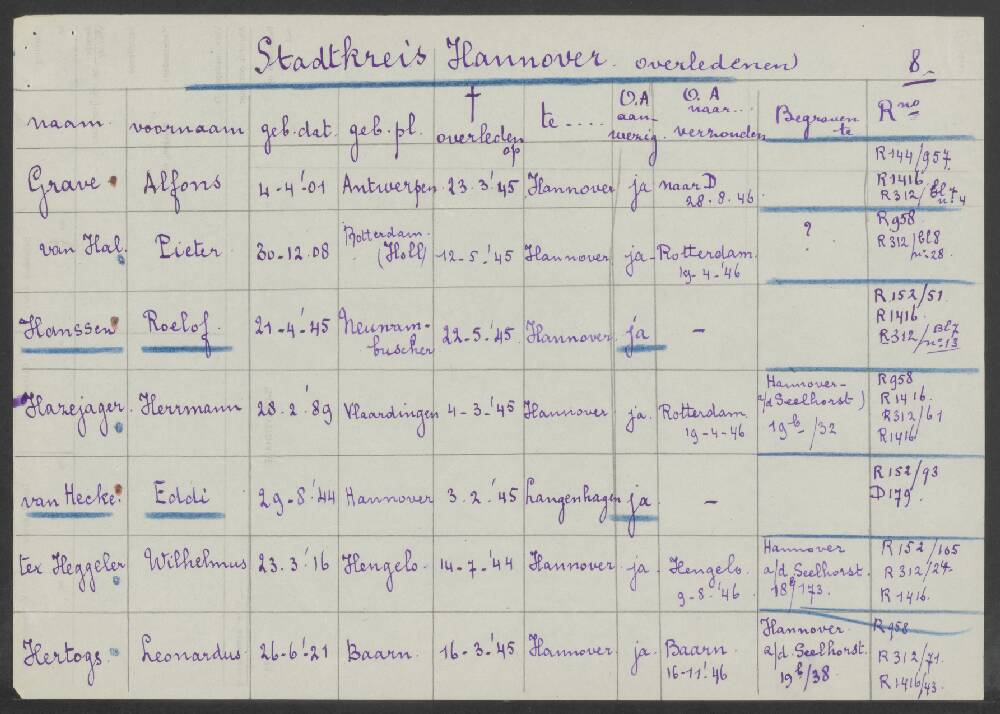 Stadtkreis Hannover. overledenen 8.
naam. voornaam geb. dat. geb. pl. † overleden op te .... O.A aan-wezig O.A naar... verzonden Begraven te R no
Grave Alfons 4-4-'01 Antwerpen 23.3.'45 Hannover ja naar D 28.8.46
R144/957.
R1416.
R312/bl7 no. 4
van Hal. Pieter 30-12.'08 Rotterdam. (Holl) 12-5.'45 Hannover ja Rotterdam. 19-4-'46 ?
R958.
R312/Bl8 no.28.
Hanssen Roelof. 21-4-'45 Neunram-buscher 22.5.'45 Hannover. ja -
R152/51.
R1416.
R312/Bl7 no.13
Hazejager. Herrmann 28.2.'89 Vlaardingen 4-3.'45 Hannover ja. Rotterdam. 19-4-46
Hannover-
a/d Seelhorst)
19b/32
R958
R1416.
R312/61
R1416
van Hecke. Eddi 29-8.'44 Hannover 3.2.'45 Langenhagen ja. -
R152/93
D179.
ter Heggeler Wilhelmus 23.3.'16 Hengelo. 14-7.'44 Hannover ja. Hengelo. 9-8.'46
Hannover
a/d. Seelhorst.
18b/173.
R152/165
R312/24
R1416.
Hertogs. Leonardus 26-6'-21 Baarn. 16-3.'45 Hannover. ja. Baarn. 16-11.'46
Hannover.
a/d. Seelhorst.
19b/38
R958
R312/71.
R1416/43.